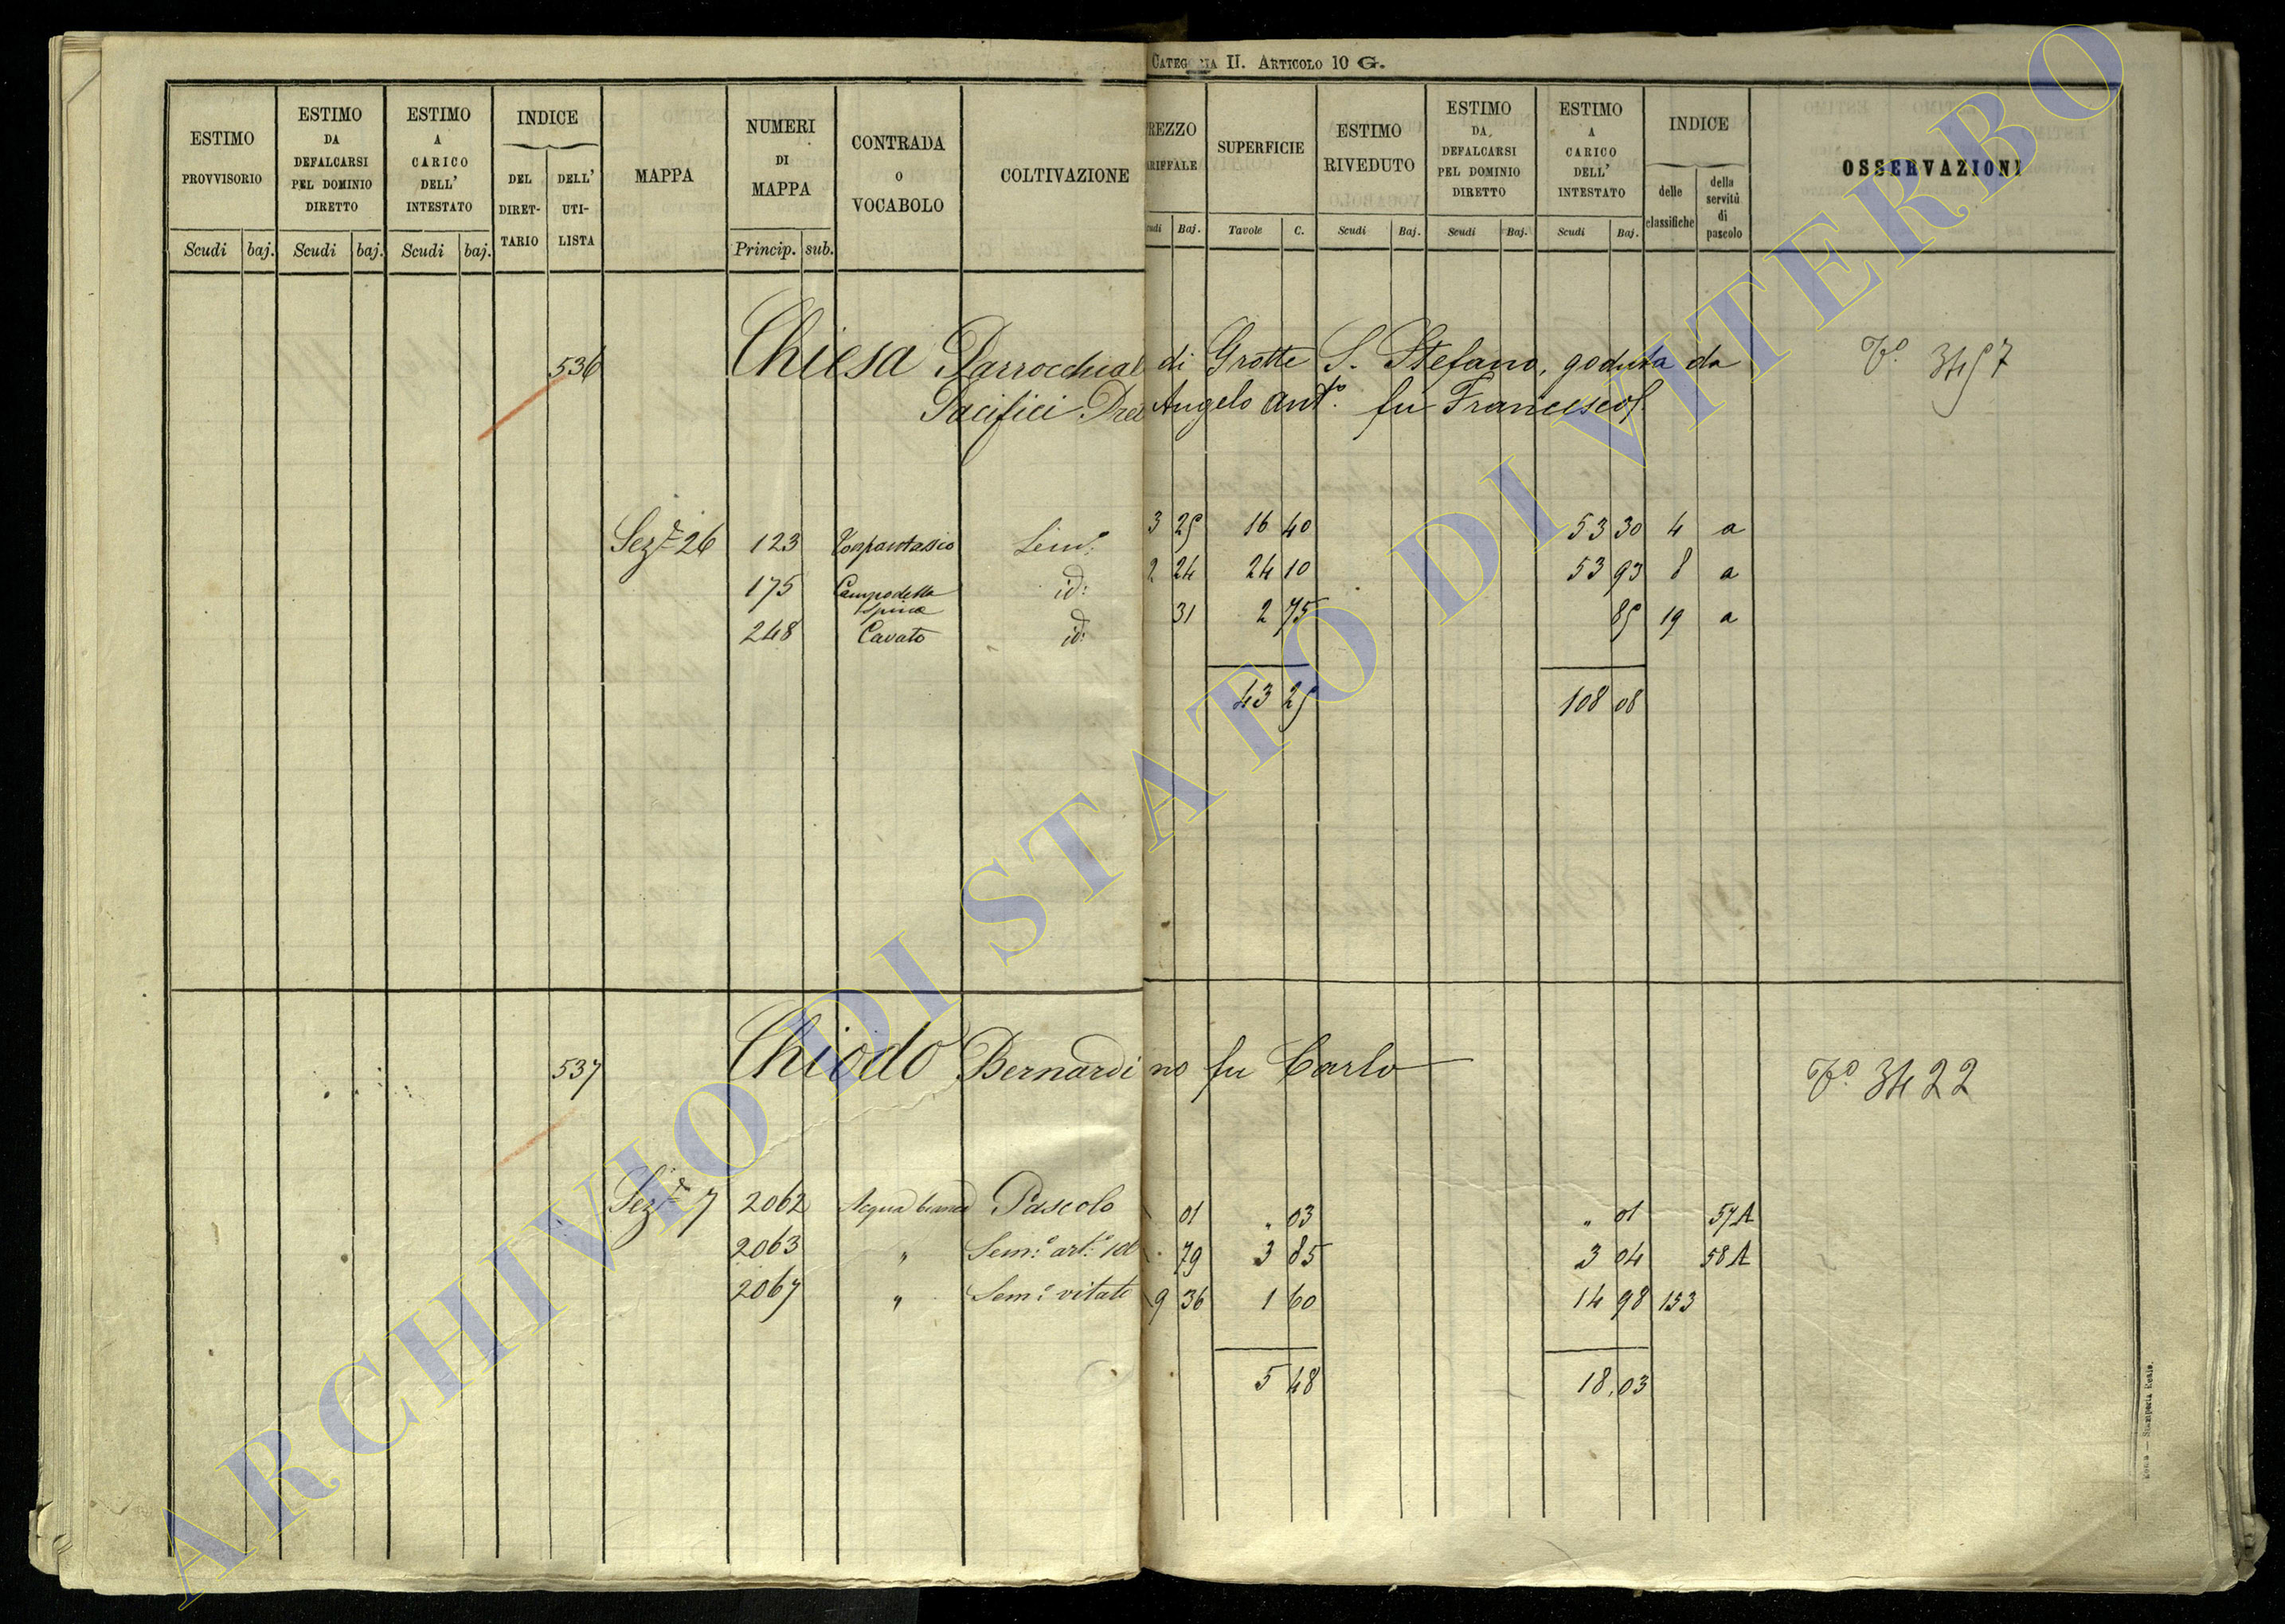 CATEGORIA II. ARTICOLO 10 G.
ESTIMO PROVVISORIO
ESTIMO DA DEFALCARSI PEL DOMINIO DIRETTO
ESTIMO A CARICO DELL' INTESTATO
INDICE
DEL DIRET-TARIO
DELL' UTI-LISTA
MAPPA
NUMERI DI MAPPA
CONTRADA O VOCABOLO
COLTIVAZIONE
REZZO ARIFFALE
SUPERFICIE
ESTIMO RIVEDUTO
ESTIMO DA DEFALCARSI PEL DOMINIO DIRETTO
ESTIMO A CARICO DELL' INTESTATO
INDICE
delle classifiche
della servitù di pascolo
OSSERVAZIONI
Scudi baj. Scudi baj. Scudi baj. Princip. sub. Baj. Tavole C. Scudi Baj. Scudi Baj. Scudi Baj.
536 Chiesa Parrocchial di Grotte S. Stefano, goduta da Vo. 3497
Pacifici Angelo Anto. fu Francesco
Seze 26 123 Semo. 3 25 16 40 53 30 4 a
175 Campo della Spina id: 2 24 24 10 53 93 8 a
248 Cavato id: 31 2 75 85 19 a
43 25 108 08
537 Chiodo Bernardino fu Carlo Vo. 3422
Seze 7 2062 Acqua bianca Pascolo 01 " 03 " 01 57A
2063 " Sem:o art:o id 79 3 85 3 04 58A
2067 " Sem:o vitato 9 36 1 60 14 98 153
5 48 18,03
Roma — Stamperia Reale.
ARCHIVIO DI STATO DI VITERBO